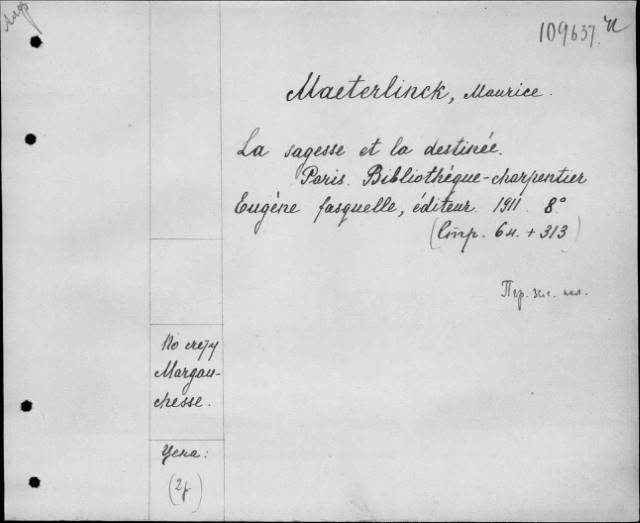 109637.
Maeterlinck, Maurice.
La sagesse et la destinée.
Paris. Bibliothéque-charpentier
Eugène fasquelle, éditeur. 1911. 8°
(Стр. 6н. + 313)
Пер.
По счету
Margau-
chesse.
Цена:
(2р.)